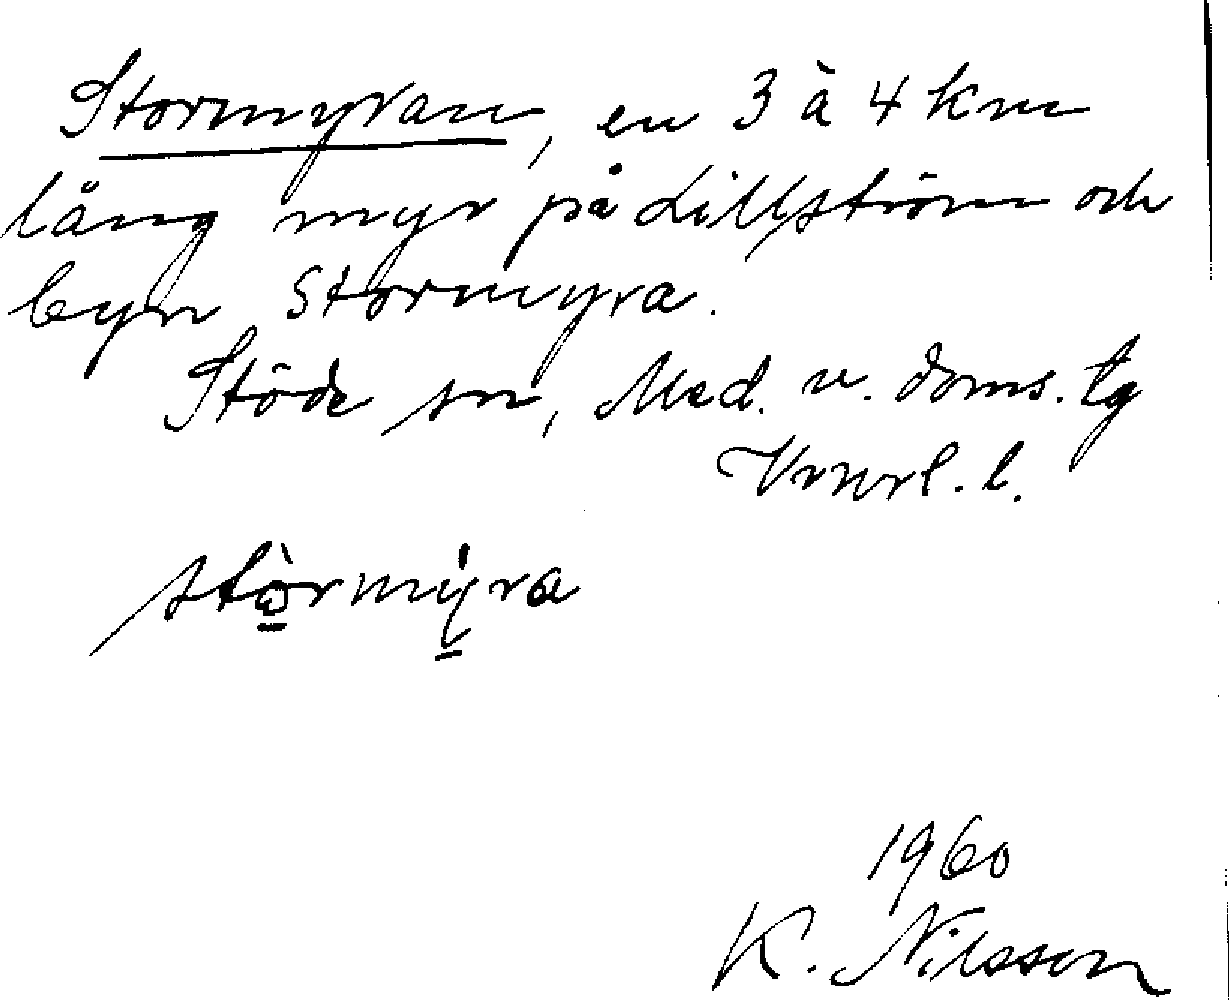 Stormyran, en 3 à 4 km
lång myr på Lillström och
byn Stormyra.
Stöde sn, Med. v. doms. tg
Vnrl. l.
stòrmýra
1960
K. Nilsson